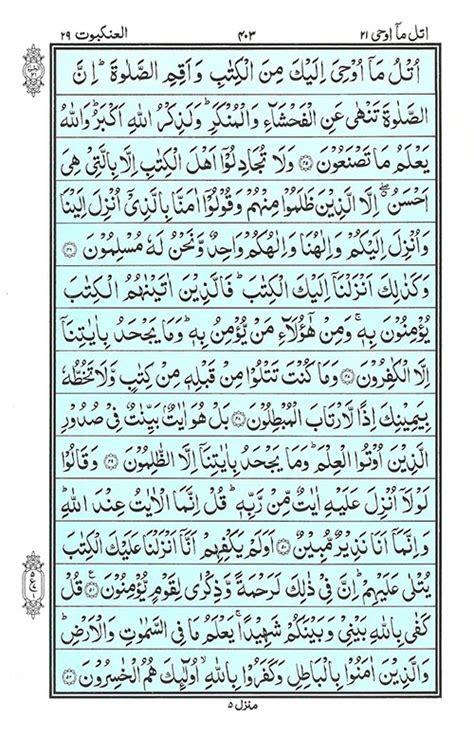 اتل مآ اوحی ۲۱ ۴۰۳ العنكبوت ۲۹
اُتْلُ مَاۤ اُوْحِیَ اِلَیْكَ مِنَ الْكِتٰبِ وَ اَقِمِ الصَّلٰوةَ ؕ اِنَّ
الصَّلٰوةَ تَنْهٰی عَنِ الْفَحْشَآءِ وَالْمُنْكَرِ ؕ وَلَذِكْرُ اللّٰهِ اَكْبَرُ ؕ وَاللّٰهُ
یَعْلَمُ مَا تَصْنَعُوْنَ ﴿۴۵﴾ وَلَا تُجَادِلُوْۤا اَهْلَ الْكِتٰبِ اِلَّا بِالَّتِیْ هِیَ
اَحْسَنُ ۖ اِلَّا الَّذِیْنَ ظَلَمُوْا مِنْهُمْ وَقُوْلُوْۤا اٰمَنَّا بِالَّذِیْۤ اُنْزِلَ اِلَیْنَا
وَاُنْزِلَ اِلَیْكُمْ وَاِلٰهُنَا وَاِلٰهُكُمْ وَاحِدٌ وَّنَحْنُ لَهٗ مُسْلِمُوْنَ ﴿۴۶﴾
وَكَذٰلِكَ اَنْزَلْنَاۤ اِلَیْكَ الْكِتٰبَ ؕ فَالَّذِیْنَ اٰتَیْنٰهُمُ الْكِتٰبَ
یُؤْمِنُوْنَ بِهٖ ۚ وَمِنْ هٰۤؤُلَآءِ مَنْ یُّؤْمِنُ بِهٖ ؕ وَمَا یَجْحَدُ بِاٰیٰتِنَاۤ
اِلَّا الْكٰفِرُوْنَ ﴿۴۷﴾ وَمَا كُنْتَ تَتْلُوْا مِنْ قَبْلِهٖ مِنْ كِتٰبٍ وَّلَا تَخُطُّهٗ
بِیَمِیْنِكَ اِذًا لَّارْتَابَ الْمُبْطِلُوْنَ ﴿۴۸﴾ بَلْ هُوَ اٰیٰتٌۢ بَیِّنٰتٌ فِیْ صُدُوْرِ
الَّذِیْنَ اُوْتُوا الْعِلْمَ ؕ وَمَا یَجْحَدُ بِاٰیٰتِنَاۤ اِلَّا الظّٰلِمُوْنَ ﴿۴۹﴾ وَقَالُوْا
لَوْلَاۤ اُنْزِلَ عَلَیْهِ اٰیٰتٌ مِّنْ رَّبِّهٖ ؕ قُلْ اِنَّمَا الْاٰیٰتُ عِنْدَ اللّٰهِ ؕ
وَاِنَّمَاۤ اَنَا نَذِیْرٌ مُّبِیْنٌ ﴿۵۰﴾ اَوَلَمْ یَكْفِهِمْ اَنَّاۤ اَنْزَلْنَا عَلَیْكَ الْكِتٰبَ
یُتْلٰی عَلَیْهِمْ ؕ اِنَّ فِیْ ذٰلِكَ لَرَحْمَةً وَّذِكْرٰی لِقَوْمٍ یُّؤْمِنُوْنَ ﴿۵۱﴾ قُلْ
كَفٰی بِاللّٰهِ بَیْنِیْ وَبَیْنَكُمْ شَهِیْدًا ۚ یَعْلَمُ مَا فِی السَّمٰوٰتِ وَالْاَرْضِ ؕ
وَالَّذِیْنَ اٰمَنُوْا بِالْبَاطِلِ وَكَفَرُوْا بِاللّٰهِ ۙ اُولٰٓئِكَ هُمُ الْخٰسِرُوْنَ ﴿۵۲﴾
منزل ۵